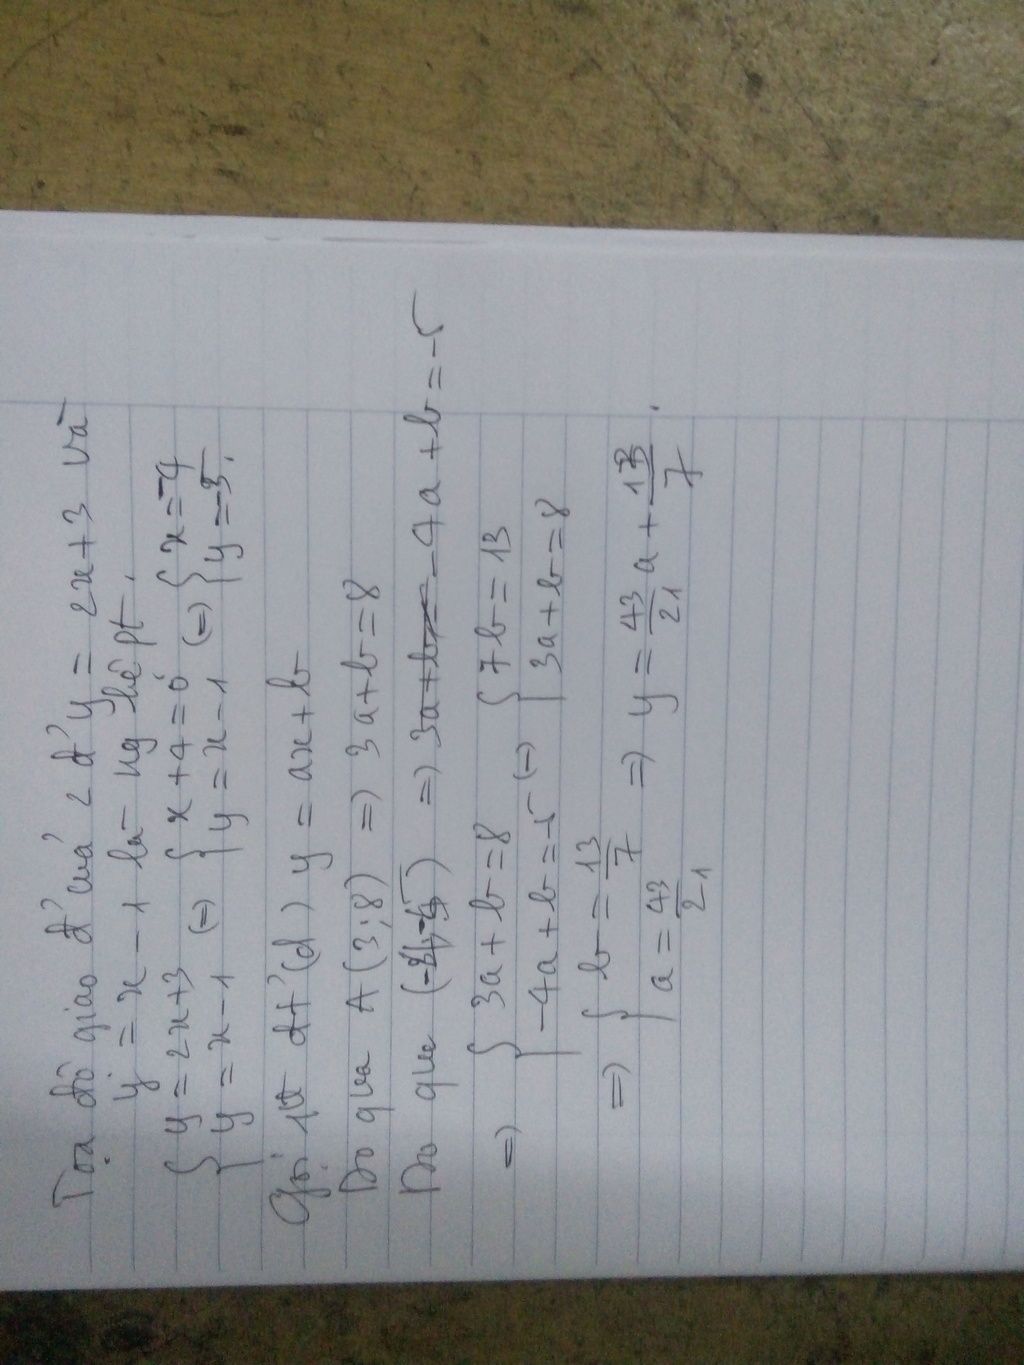 Tọa độ giao đ' của 2 đ' y = 2x+3 và
y = x - 1 là ng hệ pt.
{ y = 2x+3 (=) { x+4=0 (=) { x=-4
{ y = x-1 { y = x-1 { y=-5.
Gọi ptđt (d) y = ax+b
Do qua A(3;8) => 3a+b=8
Do qua => 3a+b= -4a+b=-5
=> { 3a+b=8 (=) { 7b=13
{ -4a+b=-5 { 3a+b=8
=> { b=13/7
{ a=43/21 => y=43/21 a+13/7.